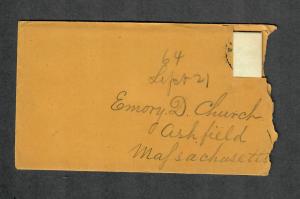 64
Sept 21
Emory. D. Church
Ashfield
Massachusetts